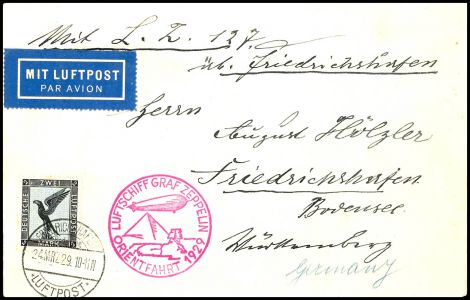 Mit L. Z. 127
üb. Friedrichshafen
MIT LUFTPOST
PAR AVION
Herrn
August Hölzler
Friedrichshafen
Bodensee
Württemberg
Germany
LUFTSCHIFF GRAF ZEPPELIN
ORIENTFAHRT 1929
ZWEI
DEUTSCHE
LUFTPOST
MARK
24.MRZ.29.10-11
LUFTPOST